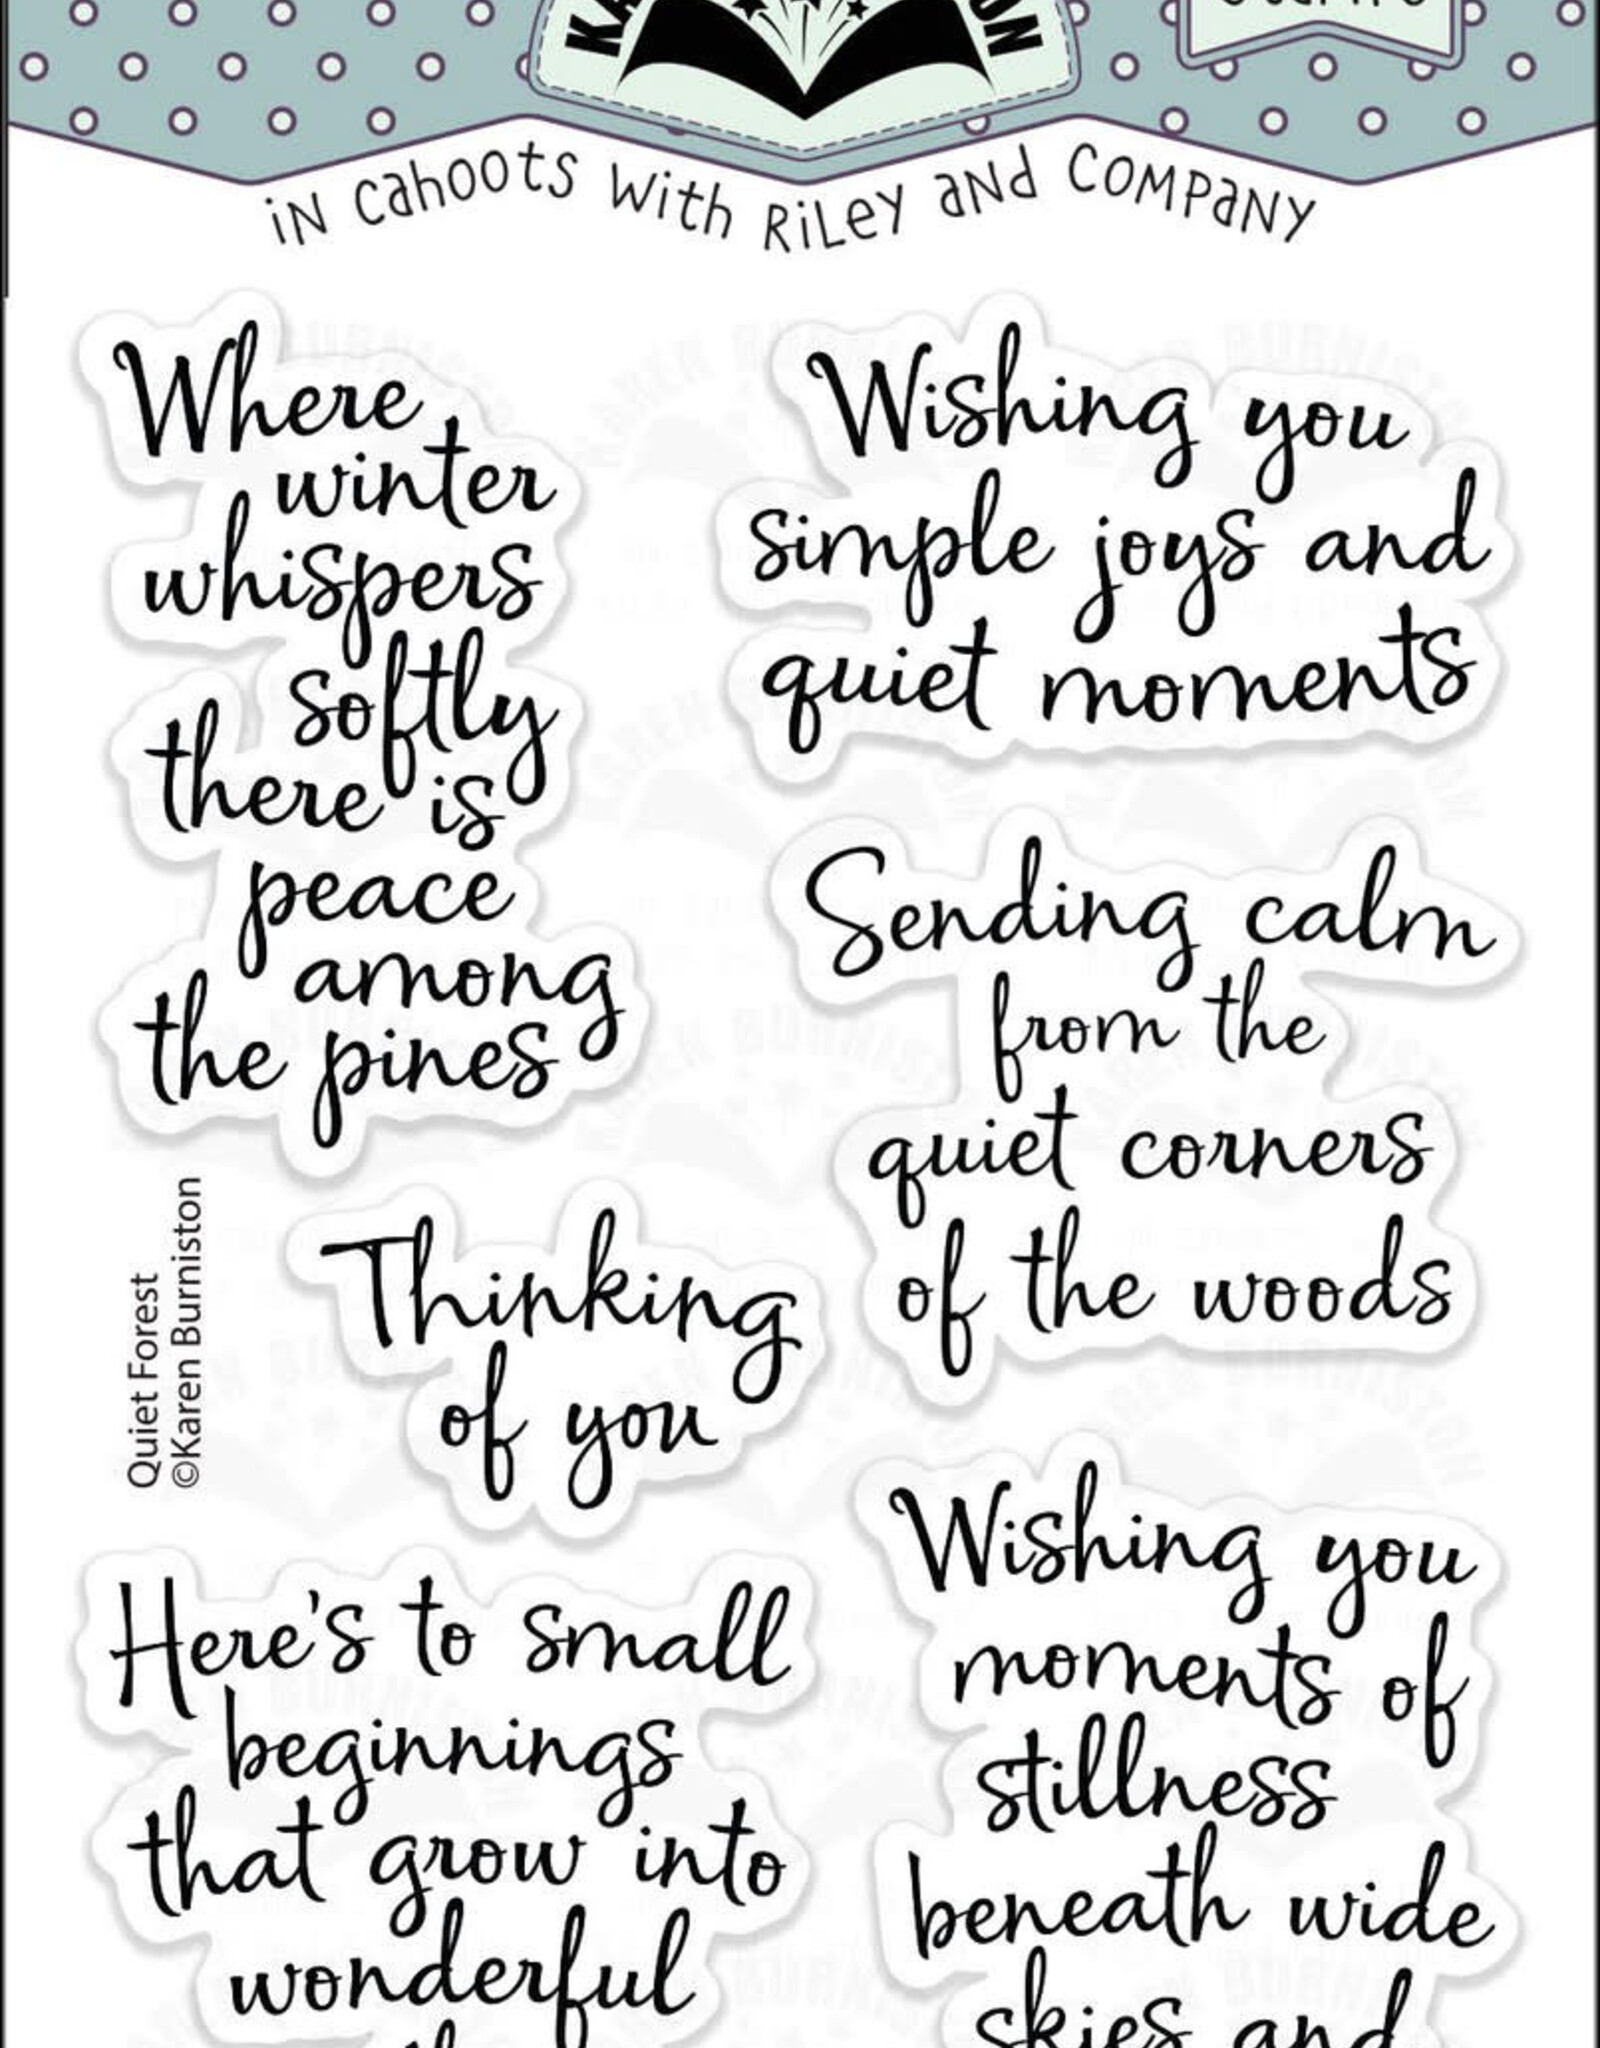 iN cahoots with Riley and Company
Where
winter
whispers
softly
there is
peace
among
the pines
Wishing you
simple joys and
quiet moments
Sending calm
from the
quiet corners
of the woods
Quiet Forest
©Karen Burniston
Thinking
of you
Here's to small
beginnings
that grow into
wonderful
Wishing you
moments of
stillness
beneath wide
skies and